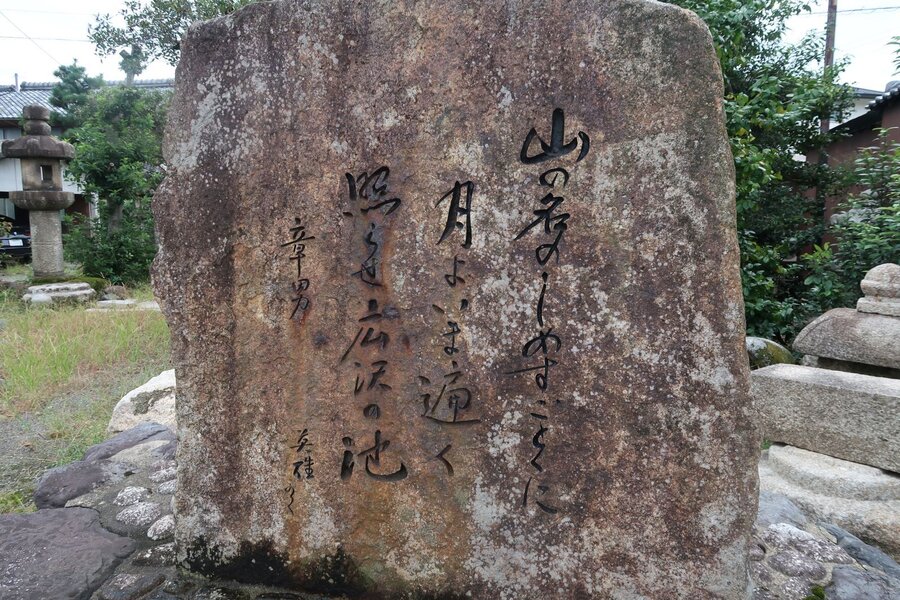 山の名のしめすごとくに
月よいま遍く
照らせ広沢の池
章男